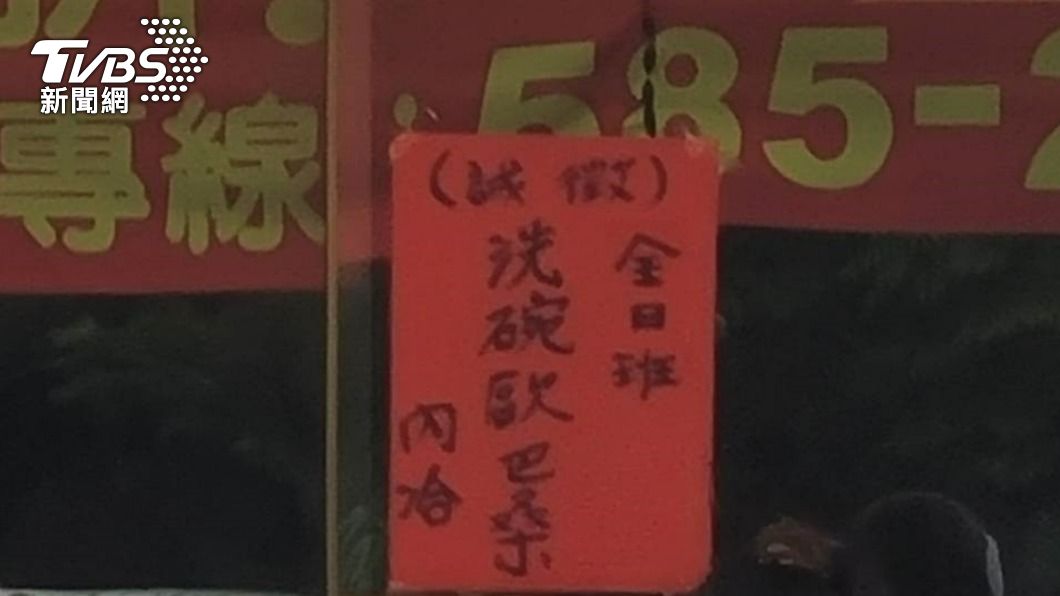 TVBS
新聞網
專線：585-2
（誠徵）
全日班
洗碗歐巴桑
內洽